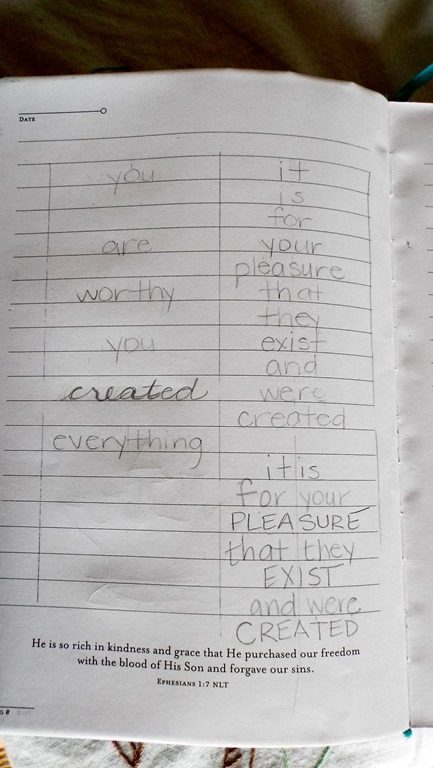 DATE
you
are
worthy
you
created
everything
it
is
for
your
pleasure
that
they
exist
and
were
created
it is
for your
PLEASURE
that they
EXIST
and were
CREATED
He is so rich in kindness and grace that He purchased our freedom
with the blood of His Son and forgave our sins.
EPHESIANS 1:7 NLT